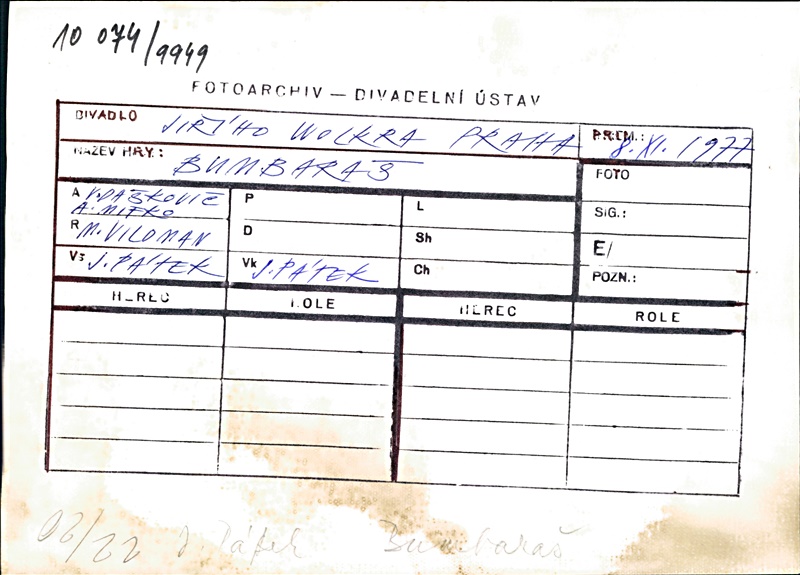 10 074/9949
FOTOARCHIV — DIVADELNÍ ÚSTAV
DIVADLO JIŘÍHO WOLKRA PRAHA PREM.: 8. XI. 1977
NÁZEV HRY: BUMBARAŠ FOTO
A V. DAŠKOVIČ P L SIG.:
A. MITKO
R M. VILDMAN D Sh E/
Vš J. PÁTEK Vk J. PÁTEK Ch POZN.:
HEREC ROLE HEREC ROLE
02/22 J Pátek Bumbaraš